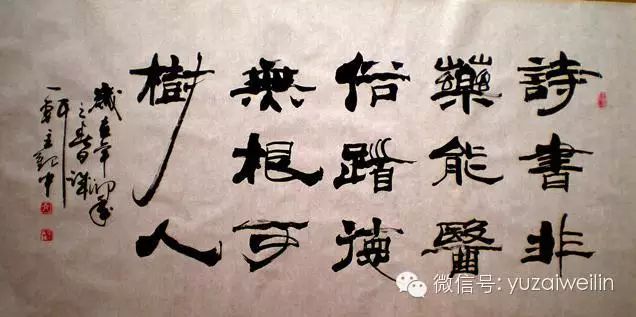 詩書非
藥能醫
俗道德
無根可
樹人
歲在辛卯
之春日
微信号: yuzaiweilin